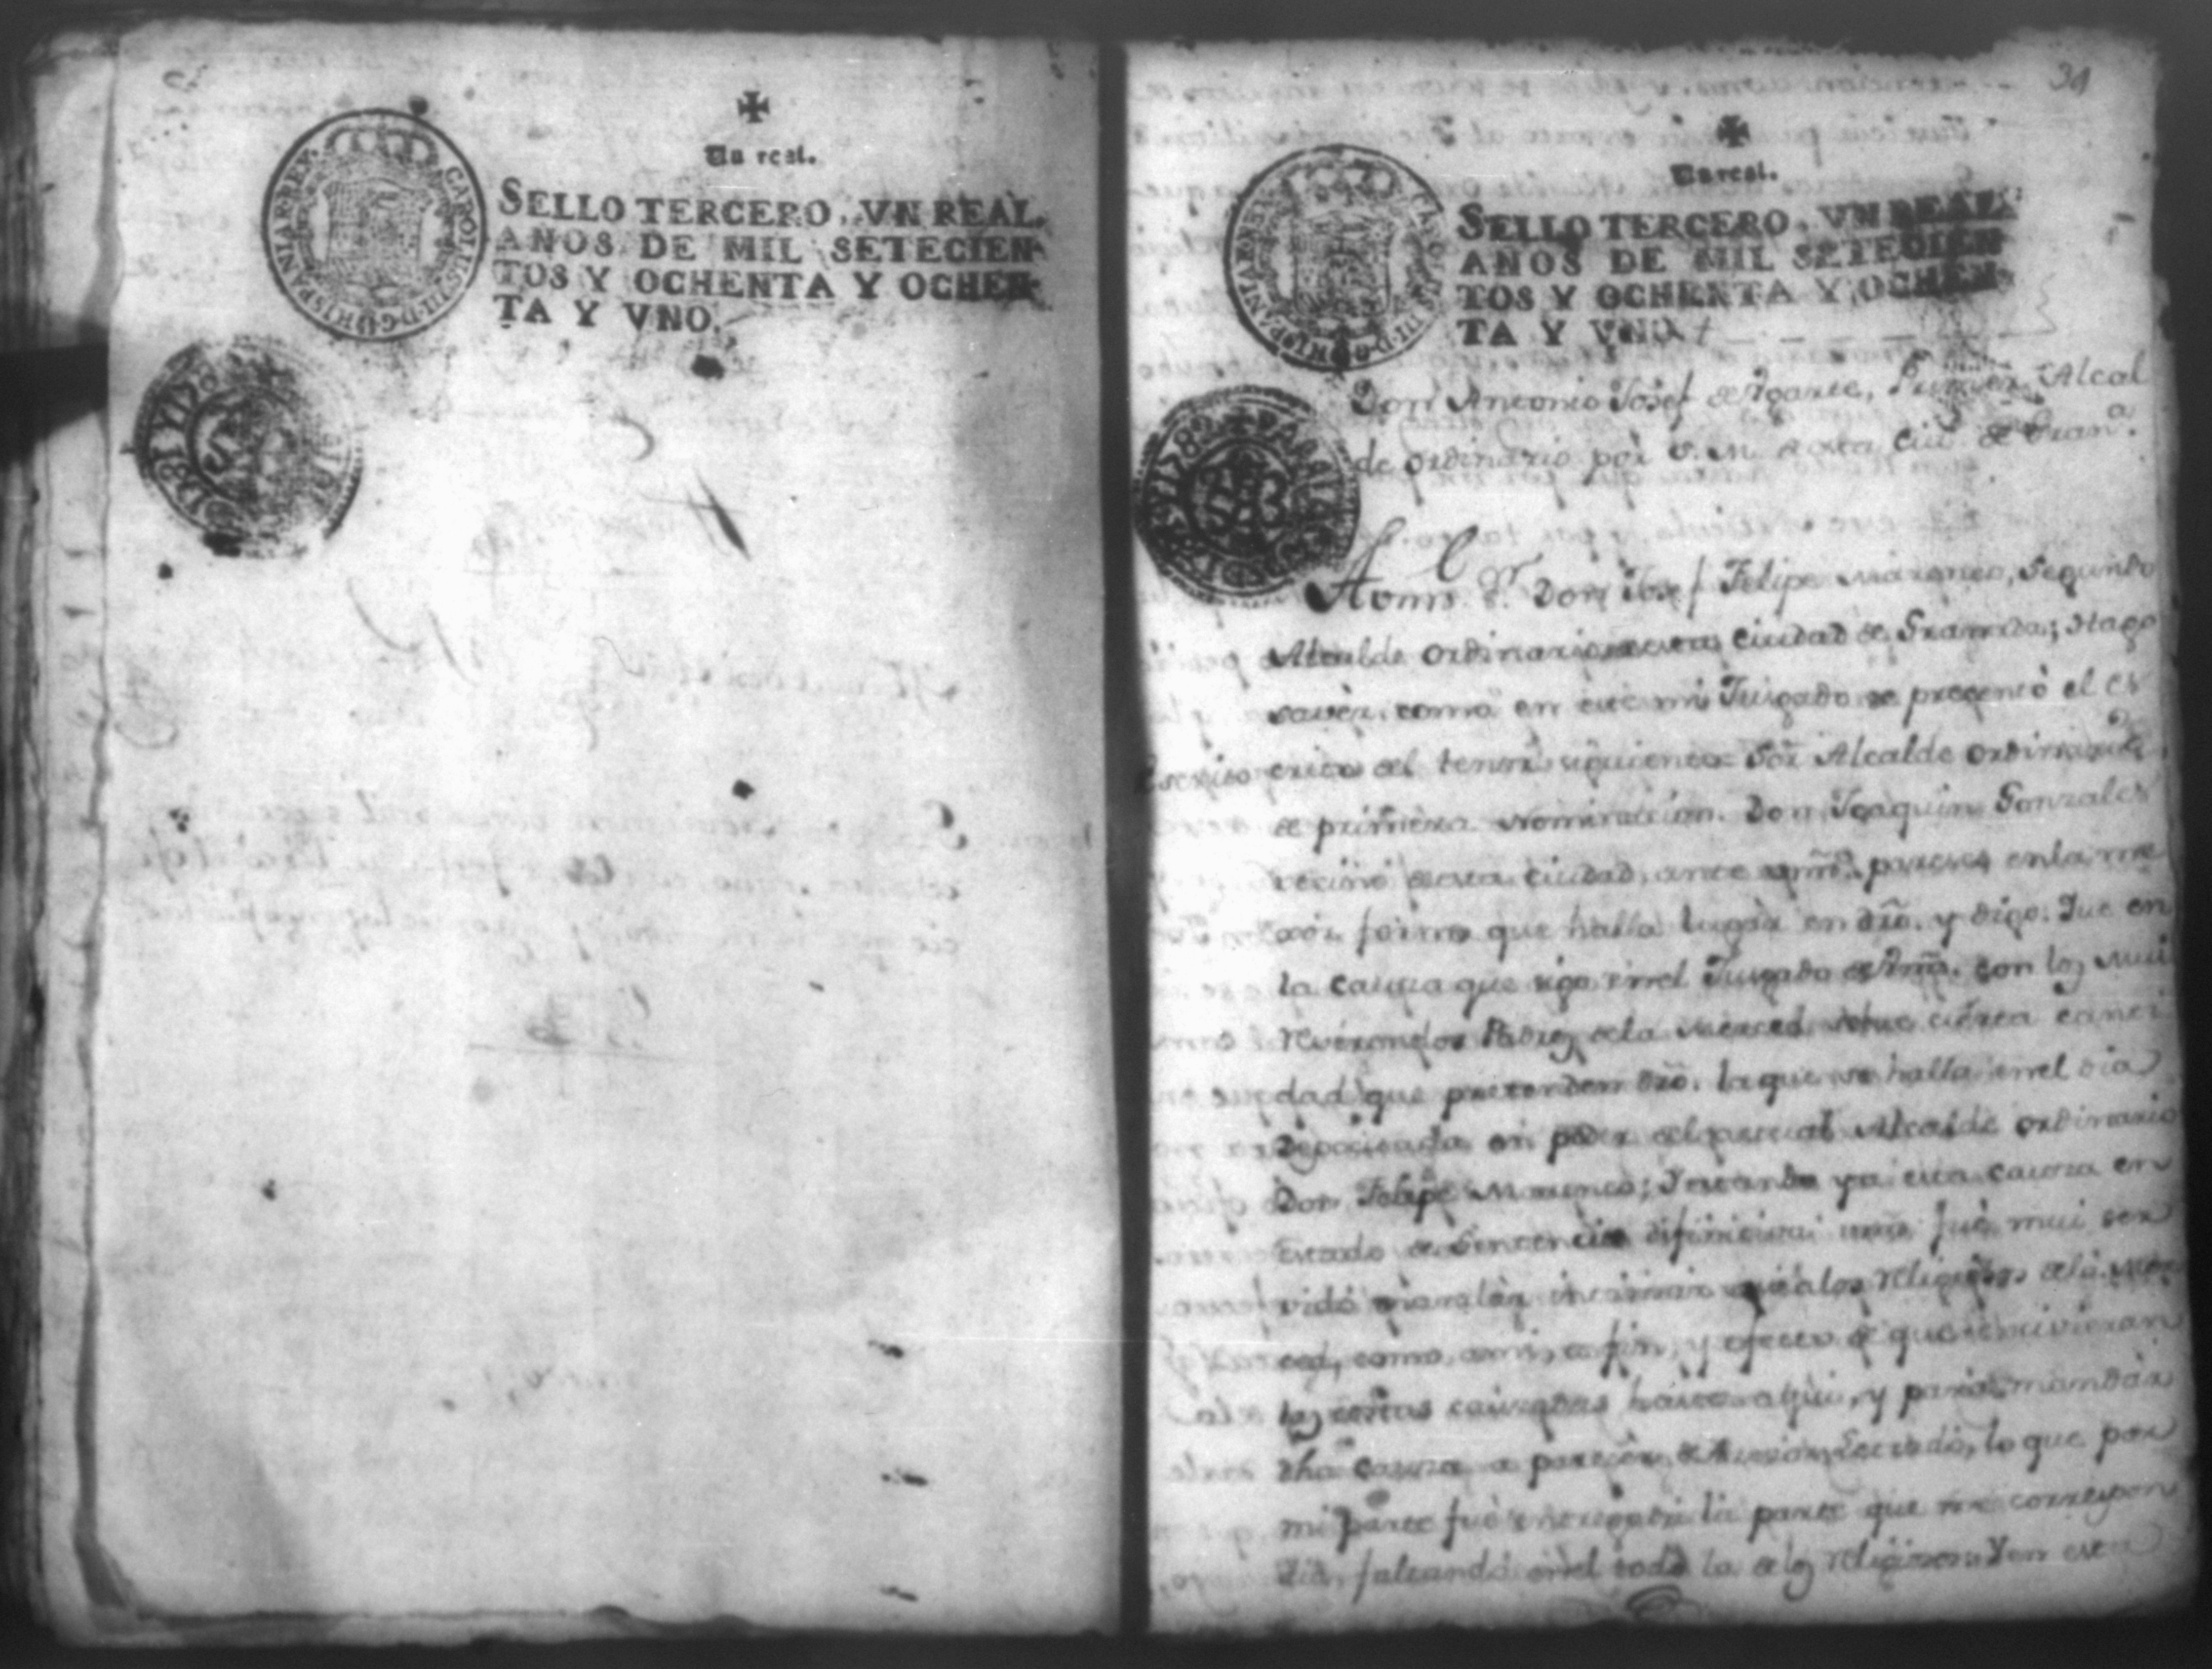 Un real.
SELLO TERCERO, VN REAL,
AÑOS DE MIL SETECIEN-
TOS Y OCHENTA Y OCHEN-
TA Y VNO.
CAROLUS III D G HISPANIAR REX
34
Un real.
SELLO TERCERO, VN REAL
AÑOS DE MIL SETECIEN
TOS Y OCHENTA Y OCHEN-
TA Y VNO
HISPANIAR
Y 1782
Don Antonio Josef de Ygarte, Primer Alcal
de ordinario por S. M. de esta Ciud. de Gran.a
A vm. Sor. Don Josef Felipe Marenco, Segundo
Alcalde ordinario de esta Ciudad de Granada; Hago
savèr, como en este mi Juzgado se precentò el es
Escrito crito del tenor siguiente= Sor. Alcalde ordinario
de primera nominacion. Don Joaquin Gonzales
vecino de esta ciudad, ante vmd. paresco en la me
xor forma que halla lugàr en dro. y digo: Que en
la causa que sigo en el Juzgado de vmd. con los mui
Reverendos Padres de la Merced, sobre cierta canti
dad que pretenden dro. la que se halla en el dia
depocitada en poder del actual Alcalde ordinario
Don Felipe Marenco; Y estando ya esta causa en
estado de Sentencia difinitiva: vmd. fuè mui ser
vido mandàr intimar asi à los Religiosos de la Mer
ced, como a mi, a fin, y efecto de que se
las costas causadas hasta aqui, y para mandàr
dha causa a parecèr de Asesor Letrado, lo que por
mi parte fuè entregada la parte que me correspon
dia, faltando en el todo la de los Religiosos: Y en esta